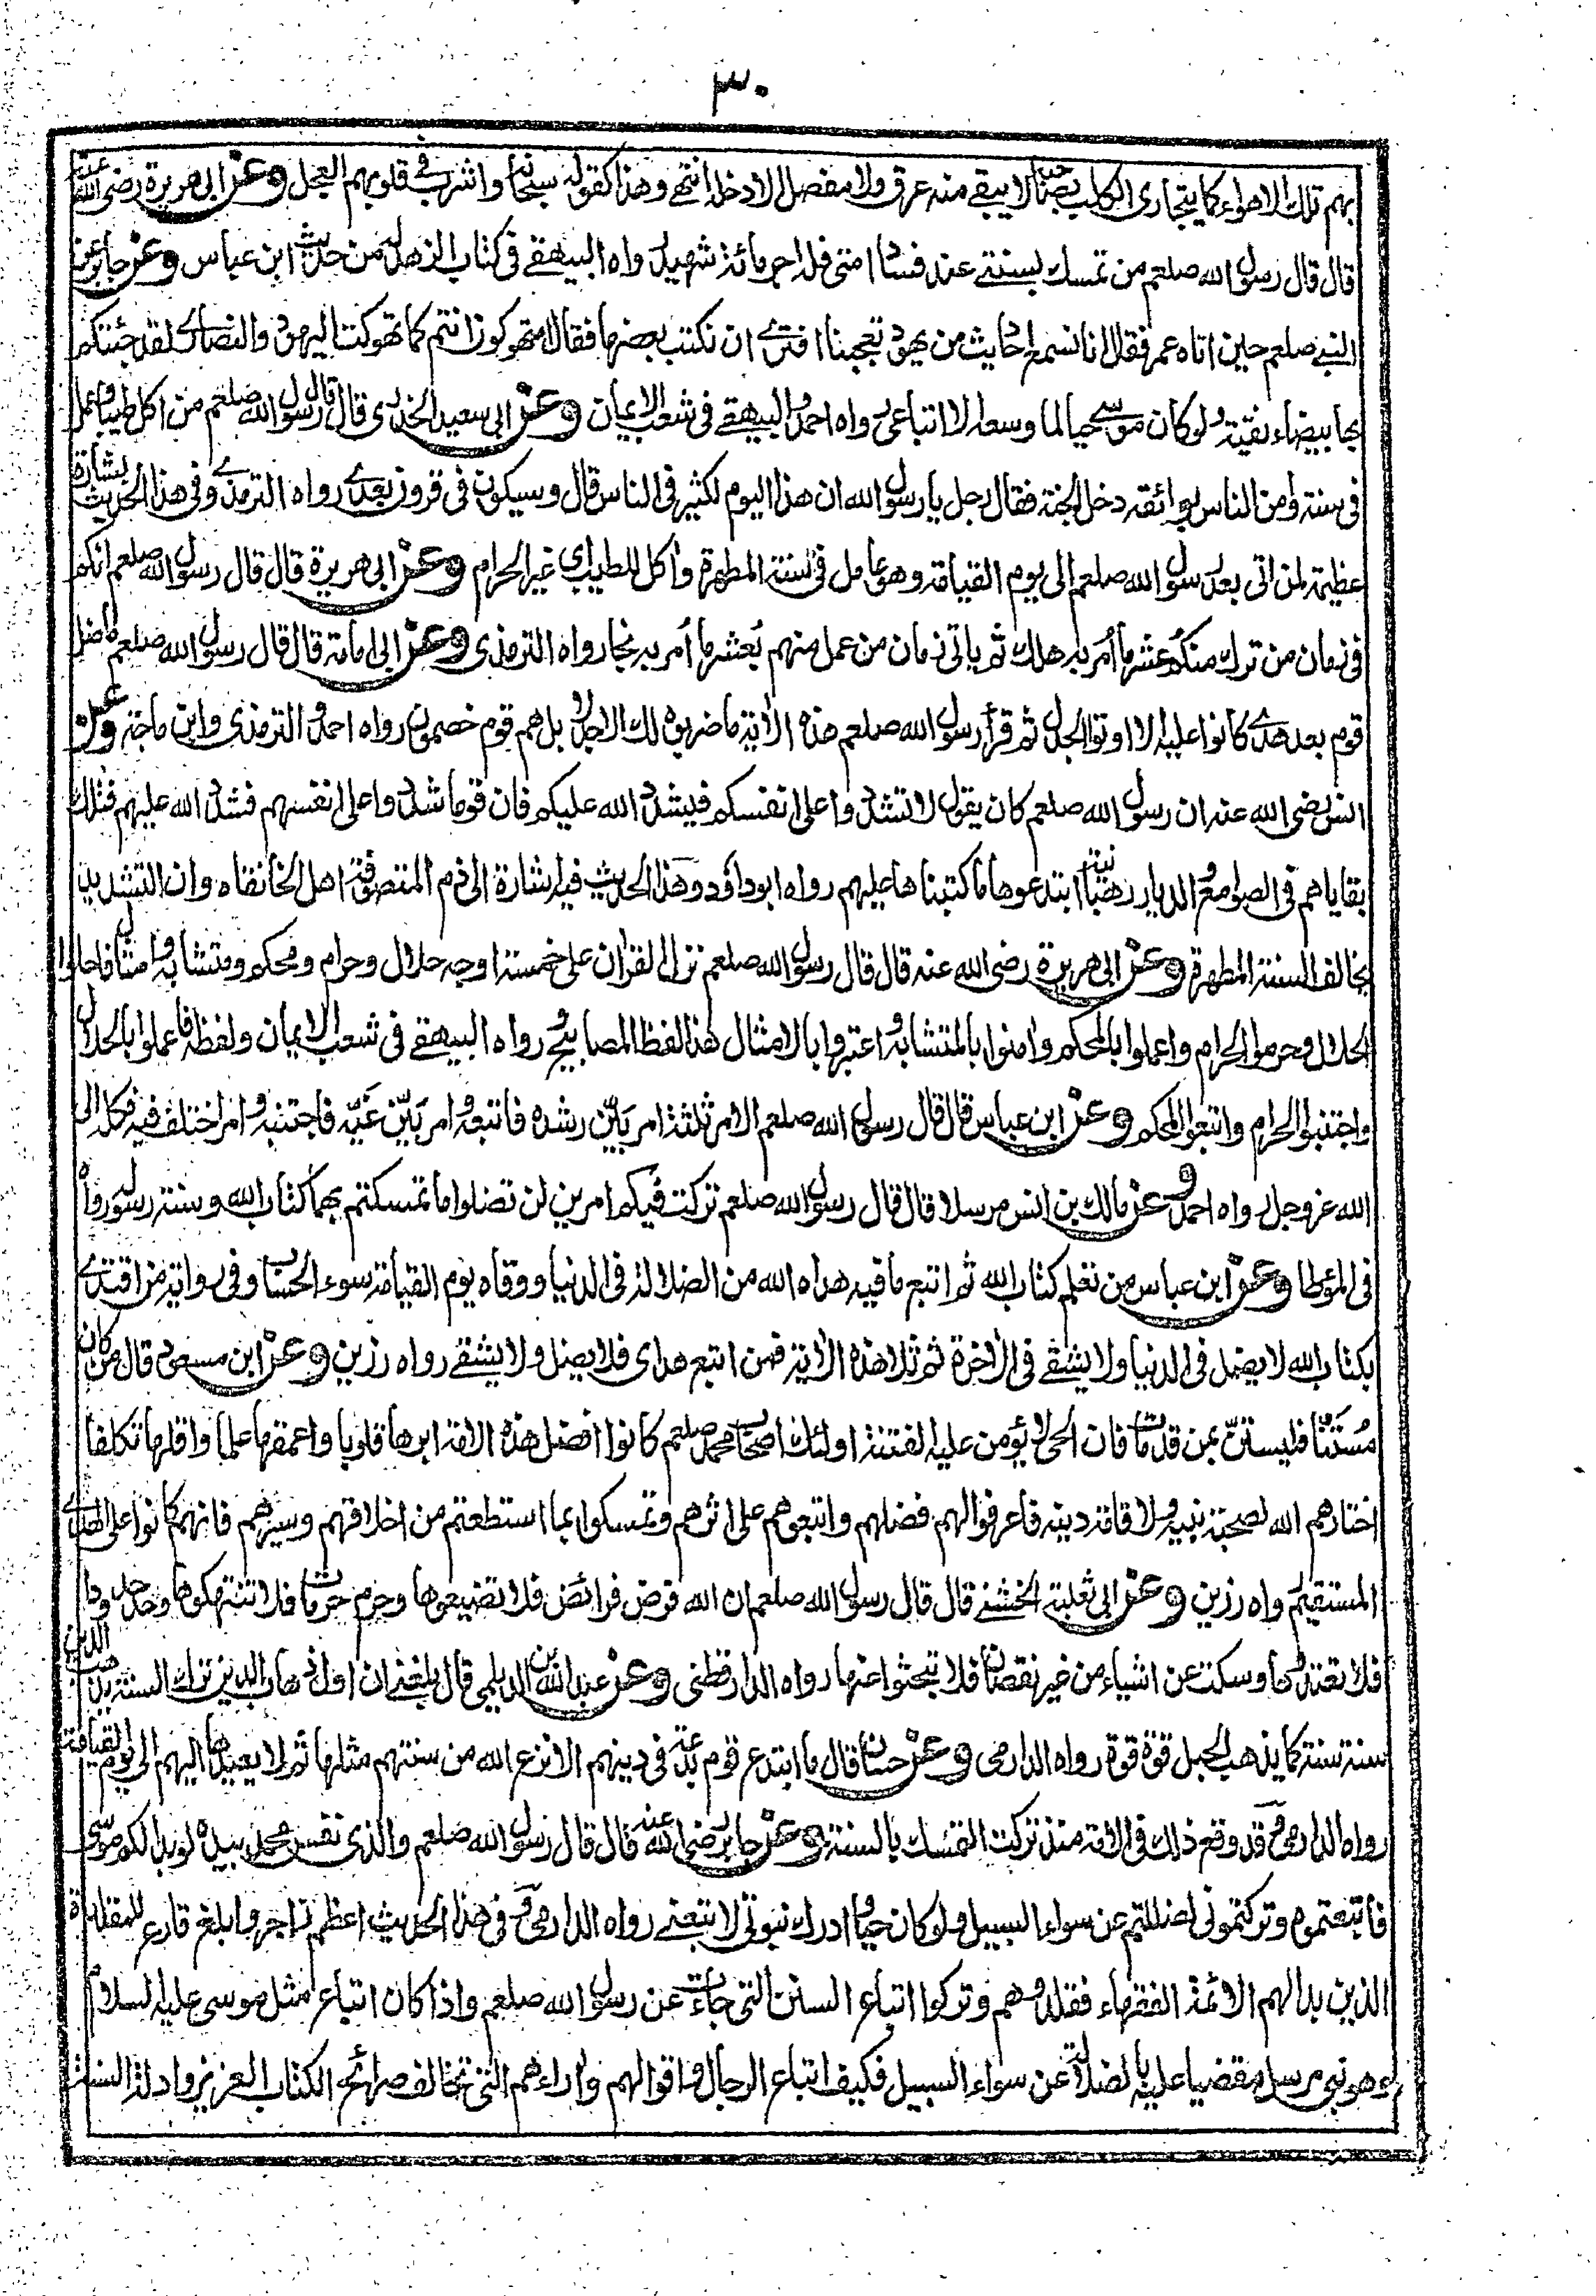 ٣٠
بهم تلك الاهواء كما يتجارى الكلب بصاحبه لا يبقے منه عرق ولا مفصل الا دخله انتهے وهذا كقوله سبحانه واشربوا فے قلوبهم العجل وعن ابی هريرة رضی الله عنه
قال قال رسول الله صلعم من تمسك بسنتے عند فساد امتی فله اجر مائة شهيد رواه البيهقے فی كتاب الزهد له من حديث ابن عباس وعن جابر عن
النبے صلعم حين اتاه عمر فقال انا نسمع احاديث من يهود تعجبنا افترے ان نكتب بعضها فقال امتهوكون انتم كما تهوكت اليهود والنصارے لقد جئتكم
بها بيضاء نقية ولو كان موسے حيا لما وسعه الا اتباعی رواه احمد والبيهقے فی شعب الايمان وعن ابی سعيد الخدری قال قال رسول الله صلعم من اكل طيبا وعمل
فی سنة وامن الناس بوائقه دخل الجنة فقال رجل يا رسول الله ان هذا اليوم لكثير فی الناس قال وسيكون فی قرون بعدے رواه الترمذے وفی هذا الحديث بشارة
عظيمة لمن اتی بعد رسول الله صلعم الی يوم القيامة وهو عامل فی سنته المطهرة واٰكل للطيب ای غير الحرام وعن ابی هريرة قال قال رسول الله صلعم انكم
فی زمان من ترك منكم عشر ما اُمر به هلك ثم ياتی زمان من عمل منهم بعشر ما اُمر به نجا رواه الترمذی وعن ابی امامة قال قال رسول الله صلعم ما ضل
قوم بعد هدے كانوا عليه الا اوتوا الجدل ثم قرأ رسول الله صلعم هذه الاٰية ما ضربوه لك الا جدلا بل هم قوم خصمون رواه احمد والترمذی وابن ماجة وعن
انس رضی الله عنه ان رسول الله صلعم كان يقول لا تشددوا علی انفسكم فيشدد الله عليكم فان قوما شددوا علی انفسهم فشدد الله عليهم فتلك
بقاياهم فی الصوامع والديار رهبانية ابتدعوها ما كتبناها عليهم رواه ابو داؤد وهذا الحديث فيه اشارة الی ذم المتصوفة اهل الخانقاه وان التشديد
يخالف السنة المطهرة وعن ابی هريرة رضی الله عنه قال قال رسول الله صلعم نزل القراٰن علی خمسة اوجه حلال وحرام ومحكم ومتشابه وامثال فاحلوا
الحلال وحرموا الحرام واعملوا بالمحكم واٰمنوا بالمتشابه واعتبروا بالامثال هذا لفظ المصابيح ورواه البيهقے فی شعب الايمان ولفظه فاعملوا بالحلال
واجتنبوا الحرام واتبعوا المحكم وعن ابن عباس قال قال رسول الله صلعم الامر ثلثة امر بَيّن رشده فاتبعه وامر بَيّن غَيّه فاجتنبه وامر اختلف فيه فكله الی
الله عز وجل رواه احمد وعن مالك بن انس مرسلا قال قال رسول الله صلعم تركت فيكم امرين لن تضلوا ما تمسكتم بهما كتاب الله وسنة رسوله رواه
فی المؤطا وعن ابن عباس من تعلم كتاب الله ثم اتبع ما فيه هداه الله من الضلالة فی الدنيا ووقاه يوم القيامة سوء الحساب وفی رواية من اقتدے
بكتاب الله لا يضل فی الدنيا ولا يشقے فی الاٰخرة ثم تلا هذه الاٰية فمن اتبع هدای فلا يضل ولا يشقے رواه رزين وعن ابن مسعود قال من كان
مُستَنّا فليستنّ بمن قد مات فان الحی لا يؤمن عليه الفتنة اولئك اصحاب محمد صلعم كانوا افضل هذه الامة ابرها قلوبا واعمقها علما واقلها تكلفا
اختارهم الله لصحبة نبيه ولاقامة دينه فاعرفوا لهم فضلهم واتبعوهم علی اثرهم وتمسكوا بما استطعتم من اخلاقهم وسيرهم فانهم كانوا علی الهدے
المستقيم رواه رزين وعن ابی ثعلبة الخشنے قال قال رسول الله صلعم ان الله فرض فرائض فلا تضيعوها وحرم حرمات فلا تنتهكوها وحد حدودا
فلا تعتدوها وسكت عن اشياء من غير نقصان فلا تبحثوا عنها رواه الدارقطنی وعن عبد الله بن الديلمی قال بلغنے ان اول ذهاب الدين ترك السنة يذهب الدين
سنة سنة كما يذهب الحبل قوة قوة رواه الدارمی وعن حسان قال ما ابتدع قوم بدعة فی دينهم الا نزع الله من سنتهم مثلها ثم لا يعيدها اليهم الی يوم القيامة
رواه الدارمی وقد وقع ذلك فی الامة منذ تركت التمسك بالسنة وعن جابر رضی الله عنه قال قال رسول الله صلعم والذی نفس محمد بيده لو بدا لكم موسی
فاتبعتموه وتركتمونی لضللتم عن سواء السبيل ولو كان حيا وادرك نبوتی لاتبعنے رواه الدارمی وفی هذا الحديث اعظم زاجر وابلغ قارع للمقلدة
الذين بدا لهم الائمة الفقهاء فقلدوهم وتركوا اتباع السنن التی جاءت عن رسول الله صلعم واذا كان اتباع مثل موسی عليه السلام
وهو نبی مرسل مقضيا عليه بالضلالة عن سواء السبيل فكيف اتباع الرجال واقوالهم واٰراءهم التی تخالف صرائح الكتاب العزيز وادلة السنة